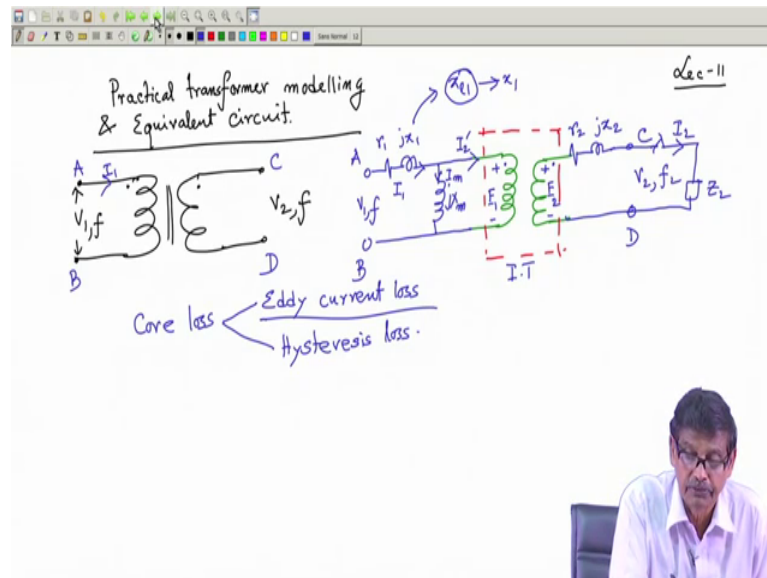 Sans Normal 12
Lec-11
Practical transformer modelling
& Equivalent circuit.
xe1 → x1
A I1 C
V1,f V2,f
B D
A r1 jx1 I2' r2 jx2 C I2
I1 Im
V1,f jXm + E1 - + E2 - V2,f2 Z2
B I.T D
Core loss
Eddy current loss
Hysteresis loss.